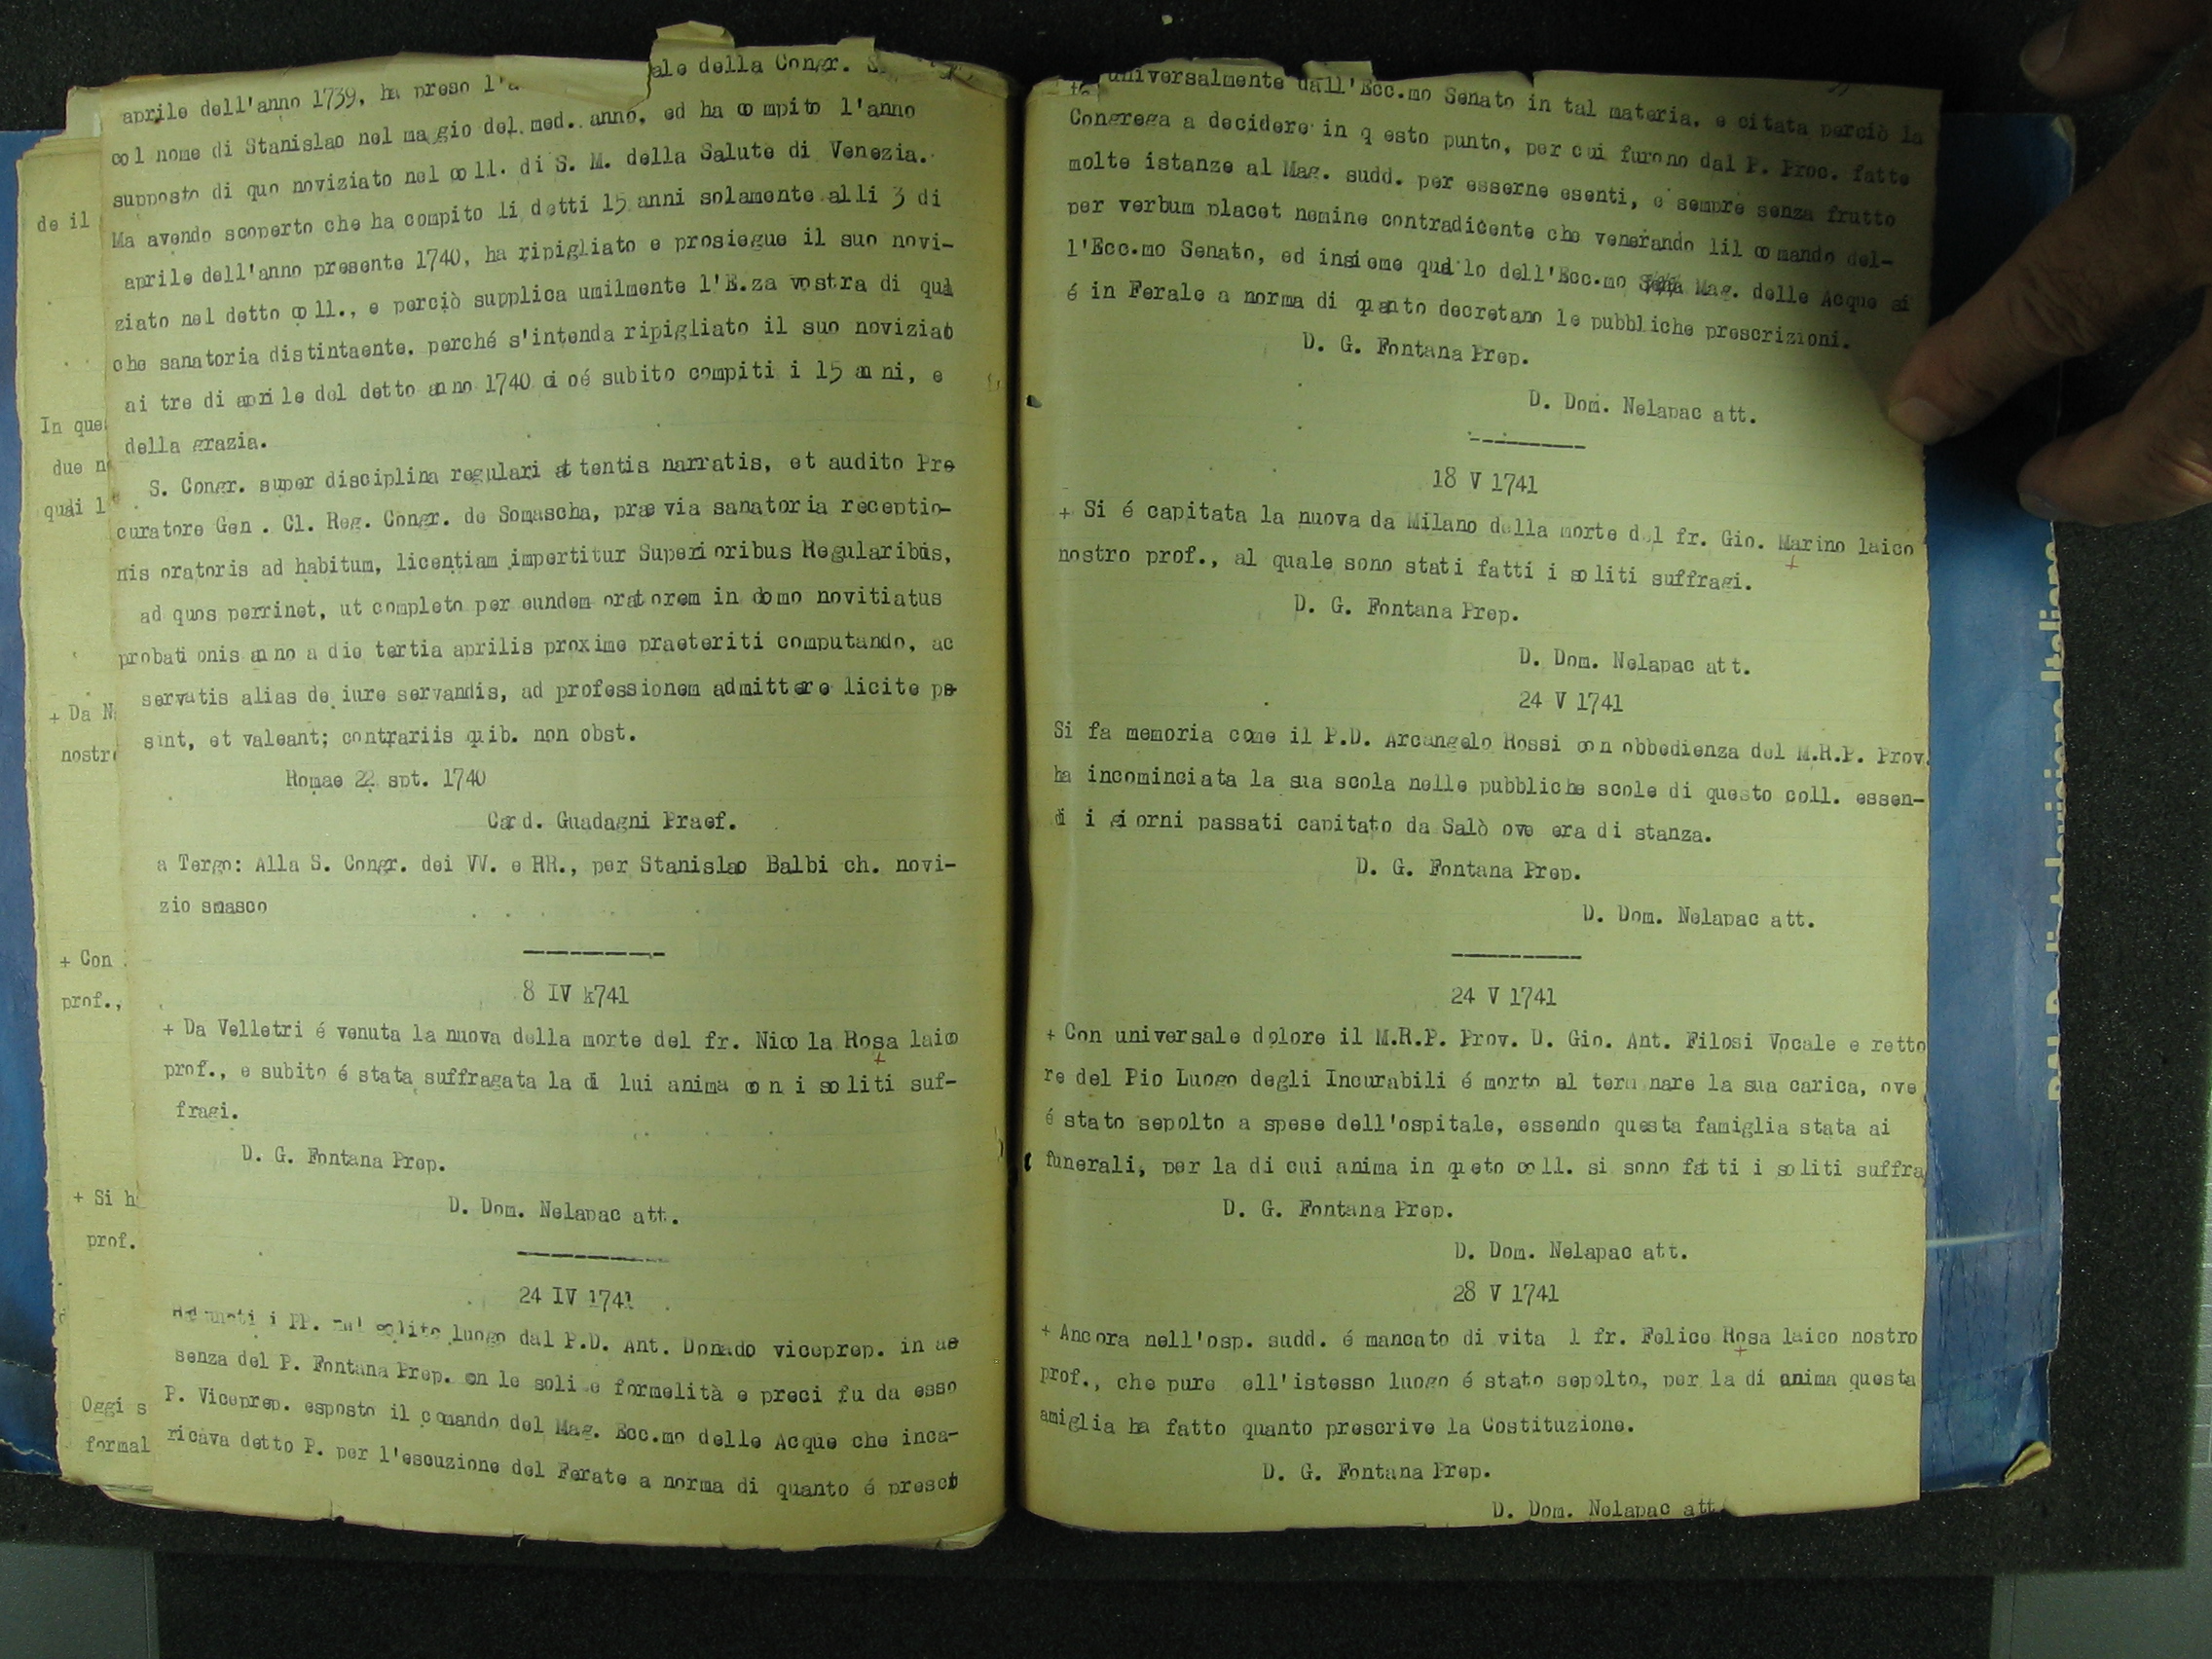 ale della Congr.
aprile dell'anno 1739, ha preso
col nome di Stanislao nel maggio del med. anno, ed ha compito l'anno
supposto di quo noviziato nel coll. di S. M. della Salute di Venezia.
Ma avendo scoperto che ha compito li detti 15 anni solamente alli 3 di
aprile dell'anno presente 1740, ha ripigliato e prosiegue il suo novi-
ziato nel detto coll., e perciò supplica umilmente l'E.za vostra di qual
che sanatoria distintaente, perché s'intenda ripigliato il suo noviziato
ai tre di aprile del detto anno 1740 cioé subito compiti i 15 anni, e
della grazia.
S. Congr. super disciplina regulari attentis narratis, et audito Pro
curatore Gen. Cl. Reg. Congr. de Somascha, praevia sanatoria receptio-
nis oratoris ad habitum, licentiam impertitur Superioribus Regularibus,
ad quos perrinet, ut completo per eundem oratorem in domo novitiatus
probationis anno a die tertia aprilis proxime praeteriti computando, ac
servatis alias de iure servandis, ad professionem admittere licite po
sint, et valeant; contrariis quib. non obst.
Romae 22 spt. 1740
Card. Guadagni Praef.
a Tergo: Alla S. Congr. dei VV. e RR., per Stanislao Balbi ch. novi-
zio smasco
8 IV k741
+ Da Velletri é venuta la nuova della morte del fr. Nicola Rosa laico
prof., e subito é stata suffragata la di lui anima con i soliti suf-
fragi.
D. G. Fontana Prep.
D. Dom. Nelapac att.
24 IV 1741
i PP. solito luogo dal P.D. Ant. Donado viceprep. in as
senza del P. Fontana Prep. on le soli e formelità e preci fu da esso
P. Viceprep. esposto il comando del Mag. Ecc.mo delle Acque che inca-
ricava detto P. per l'escuzione del Ferate a norma di quanto é
universalmente dall'Ecc.mo Senato in tal materia. e citata perciò la
Congrega a decidere in q esto punto, per cui furono dal P. Proc. fatte
molte istanze al Mag. sudd. per esserne esenti, e sempre senza frutto
per verbum placet nemine contradicente che venerando lil comando del-
l'Ecc.mo Senato, ed insieme quello dell'Ecc.mo Mag. delle Acque si
é in Ferale a norma di quanto decretano le pubbliche prescrizioni.
D. G. Fontana Prep.
D. Dom. Nelapac att.
18 V 1741
+ Si é capitata la nuova da Milano della morte del fr. Gio. Marino laico
nostro prof., al quale sono stati fatti i soliti suffragi.
D. G. Fontana Prep.
D. Dom. Nelapac att.
24 V 1741
Si fa memoria come il P.D. Arcangelo Rossi con obbedienza del M.R.P. Prov.
ha incominciata la sua scola nelle pubbliche scole di questo coll. essen-
di i giorni passati capitato da Salò ove era di stanza.
D. G. Fontana Prep.
D. Dom. Nelapac att.
24 V 1741
+ Con universale dolore il M.R.P. Prov. D. Gio. Ant. Filosi Vocale e retto
re del Pio Luogo degli Incurabili é morto al term nare la sua carica, ove
é stato sepolto a spese dell'ospitale, essendo questa famiglia stata ai
funerali, per la di cui anima in queto coll. si sono fatti i soliti suffra
D. G. Fontana Prep.
D. Dom. Nelapac att.
28 V 1741
+ Ancora nell'osp. sudd. é mancato di vita l fr. Felice Rosa laico nostro
prof., che pure ell'istesso luogo é stato sepolto, per la di anima questa
amiglia ha fatto quanto prescrive la Costituzione.
D. G. Fontana Prep.
D. Dom. Nelapac att